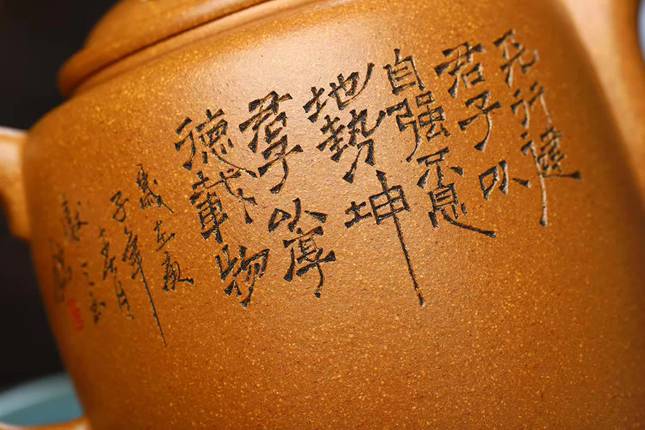 天行健
君子以
自强不息
地勢坤
君子以厚
德載物
歲在庚
子年春月